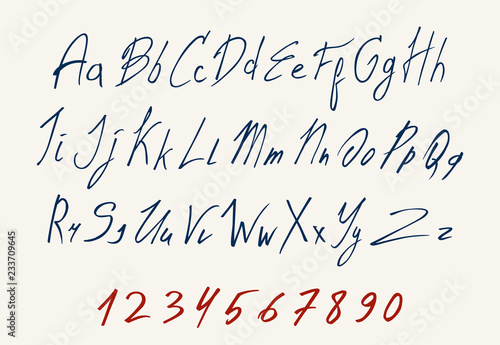 Aa Bb Cc Dd Ee Ff Gg Hh
Ii Jj Kk Ll Mm Nn Oo Pp Qq
Rr Ss Uu Vv Ww Xx Yy Zz
1 2 3 4 5 6 7 8 9 0
Adobe Stock | #233709645